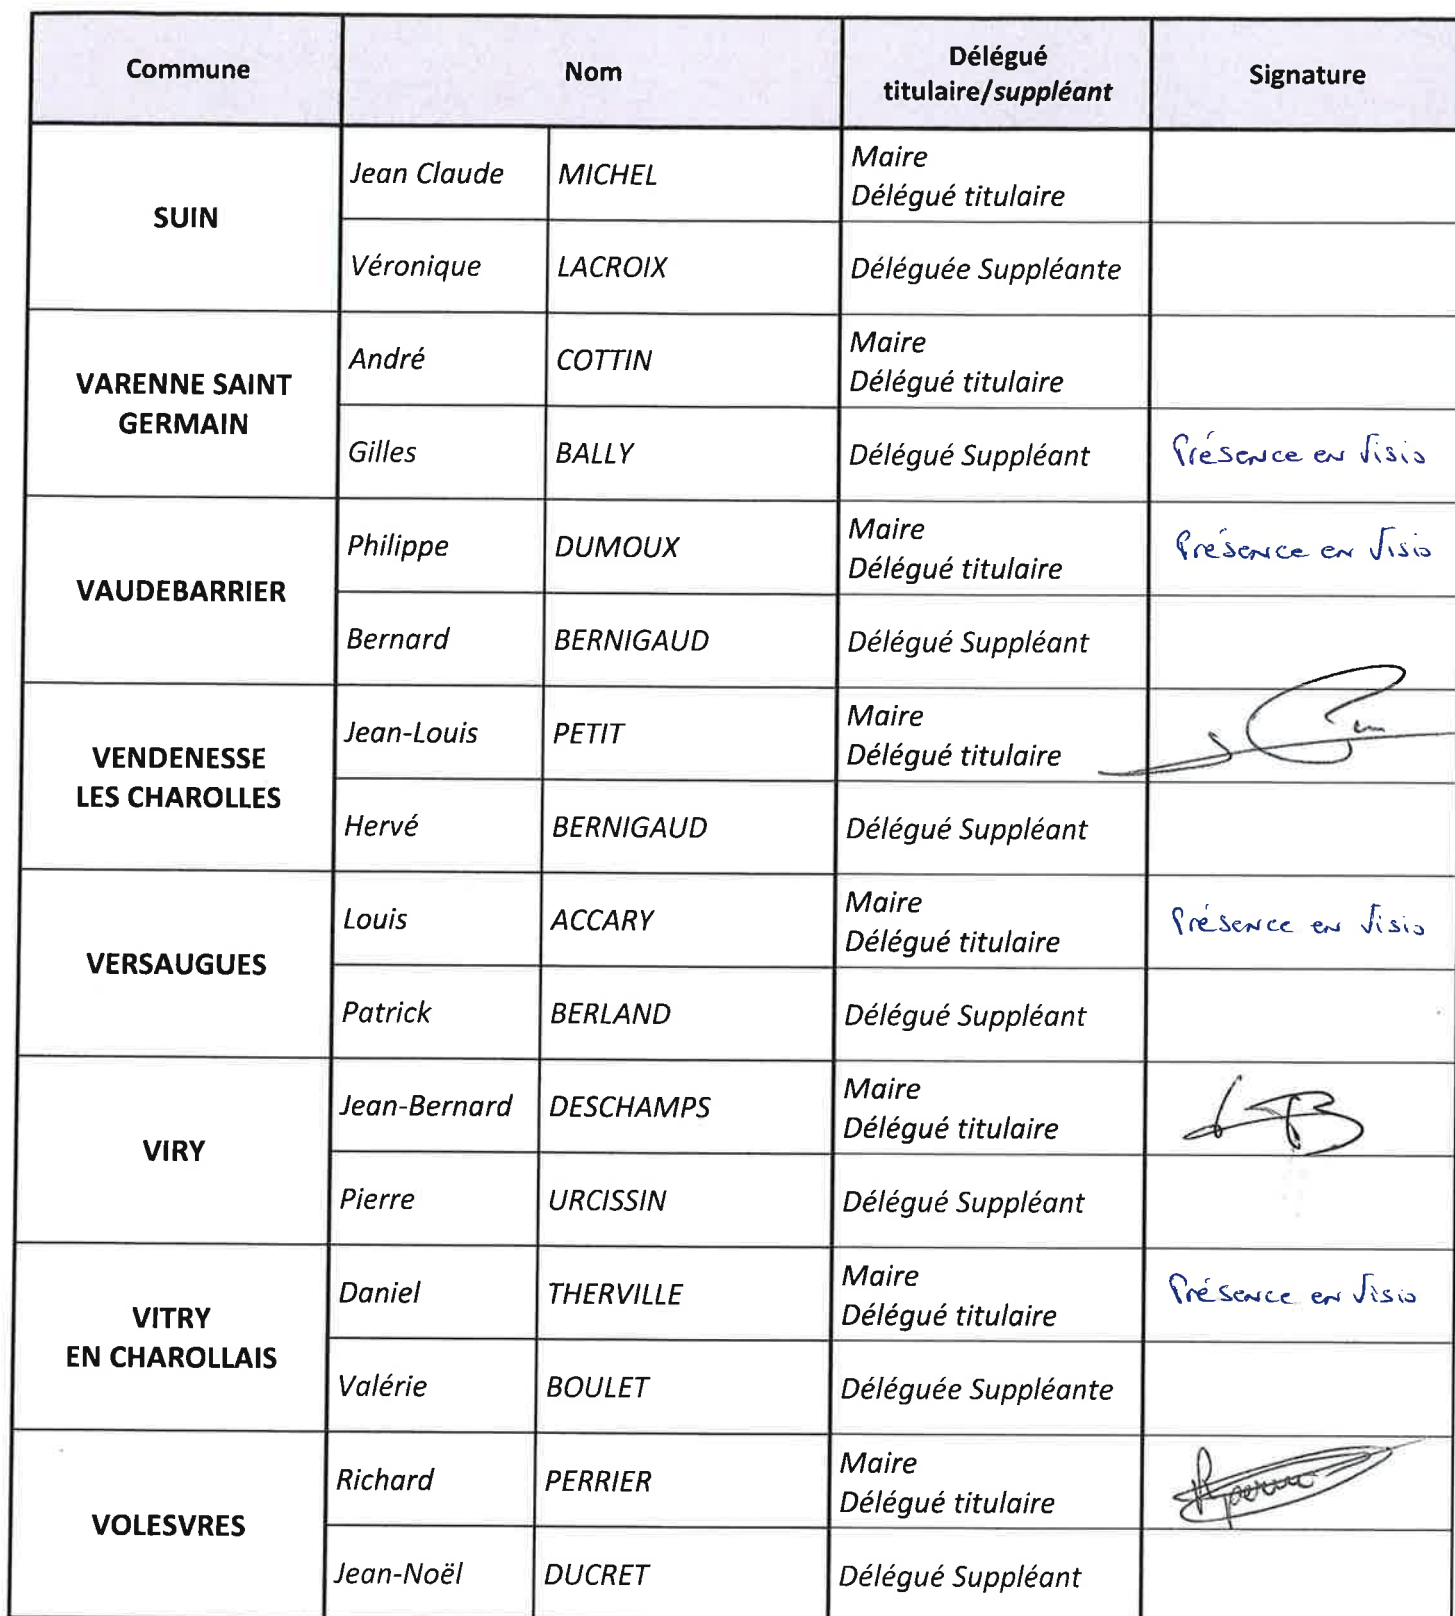 Commune
Nom
Délégué
titulaire/suppléant
Signature
SUIN
Jean Claude
MICHEL
Maire
Délégué titulaire
Véronique
LACROIX
Déléguée Suppléante
VARENNE SAINT
GERMAIN
André
COTTIN
Maire
Délégué titulaire
Gilles
BALLY
Délégué Suppléant
Présence en Visio
VAUDEBARRIER
Philippe
DUMOUX
Maire
Délégué titulaire
Présence en Visio
Bernard
BERNIGAUD
Délégué Suppléant
VENDENESSE
LES CHAROLLES
Jean-Louis
PETIT
Maire
Délégué titulaire
Hervé
BERNIGAUD
Délégué Suppléant
VERSAUGUES
Louis
ACCARY
Maire
Délégué titulaire
Présence en Visio
Patrick
BERLAND
Délégué Suppléant
VIRY
Jean-Bernard
DESCHAMPS
Maire
Délégué titulaire
Pierre
URCISSIN
Délégué Suppléant
VITRY
EN CHAROLLAIS
Daniel
THERVILLE
Maire
Délégué titulaire
Présence en Visio
Valérie
BOULET
Déléguée Suppléante
VOLESVRES
Richard
PERRIER
Maire
Délégué titulaire
Jean-Noël
DUCRET
Délégué Suppléant